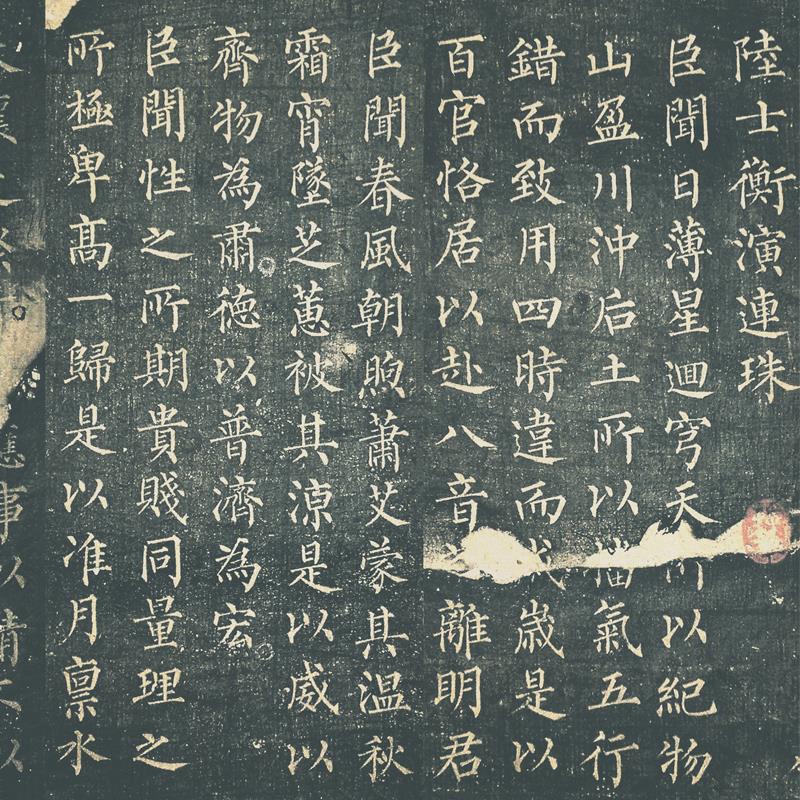 陸士衡演連珠
臣聞日薄星迴穹天所以紀物
山盈川沖后土所以播氣五行
錯而致用四時違而成歲是以
百官恪居以赴八音離明君
臣聞春風朝煦蕭艾蒙其溫秋
霜宵墜芝蕙被其涼是以威以
齊物為肅德以普濟為宏
臣聞性之所期貴賤同量理之
所極卑高一歸是以准月禀水
應事以精以